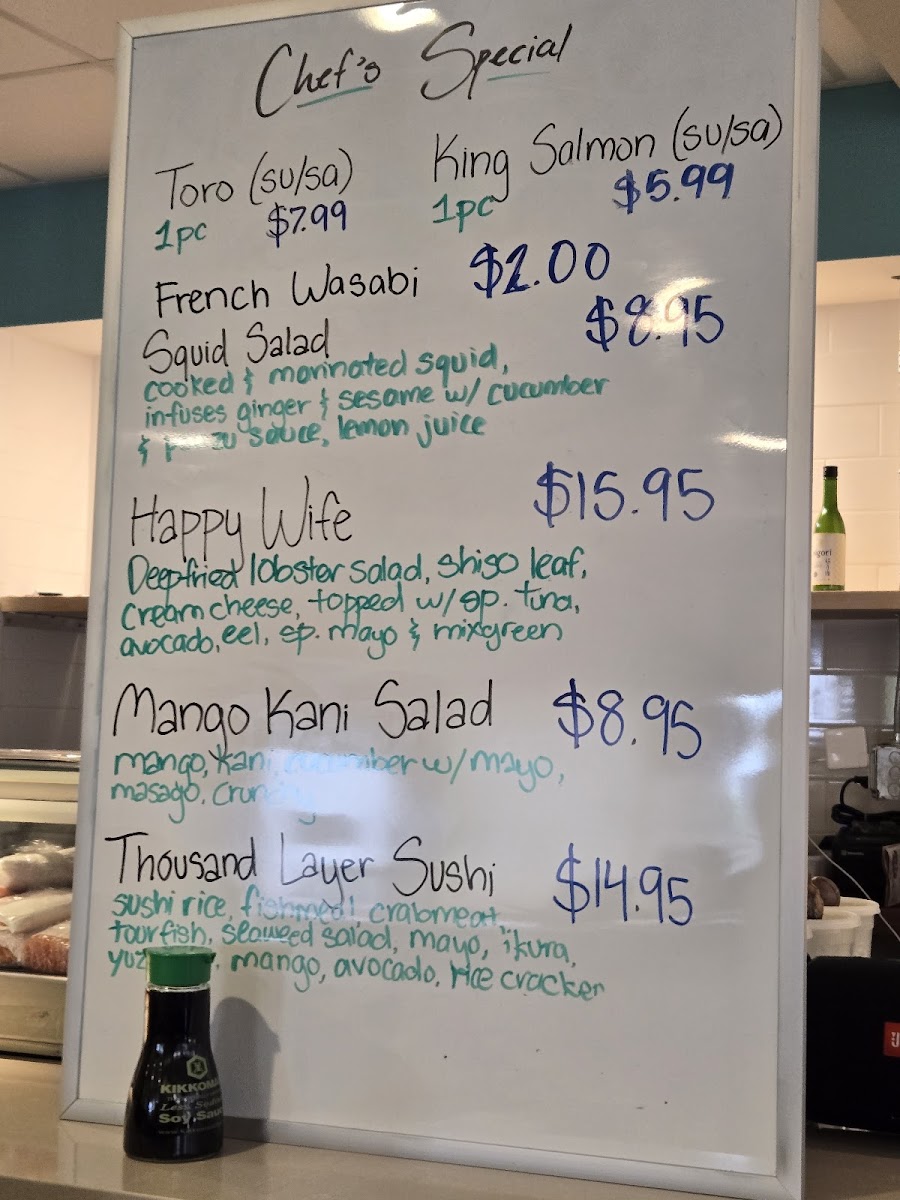 Chef's Special
Toro (su/sa)
1pc $7.99
King Salmon (su/sa)
1pc $5.99
French Wasabi $2.00
Squid Salad $8.95
cooked & marinated squid,
infuses ginger & sesame w/ cucumber
& sauce, lemon juice
Happy Wife $15.95
Deepfried lobster salad, shiso leaf,
cream cheese, topped w/ sp. tuna,
avocado, eel, sp. mayo & mixgreen
Mango Kani Salad $8.95
mango, kani, cucumber w/ mayo,
masago, crunchy
Thousand Layer Sushi $14.95
sushi rice, crabmeat,
fourfish, seaweed salad, mayo, ikura,
mango, avocado, rice cracker
KIKKOMAN
Less Sodium
Soy Sauce